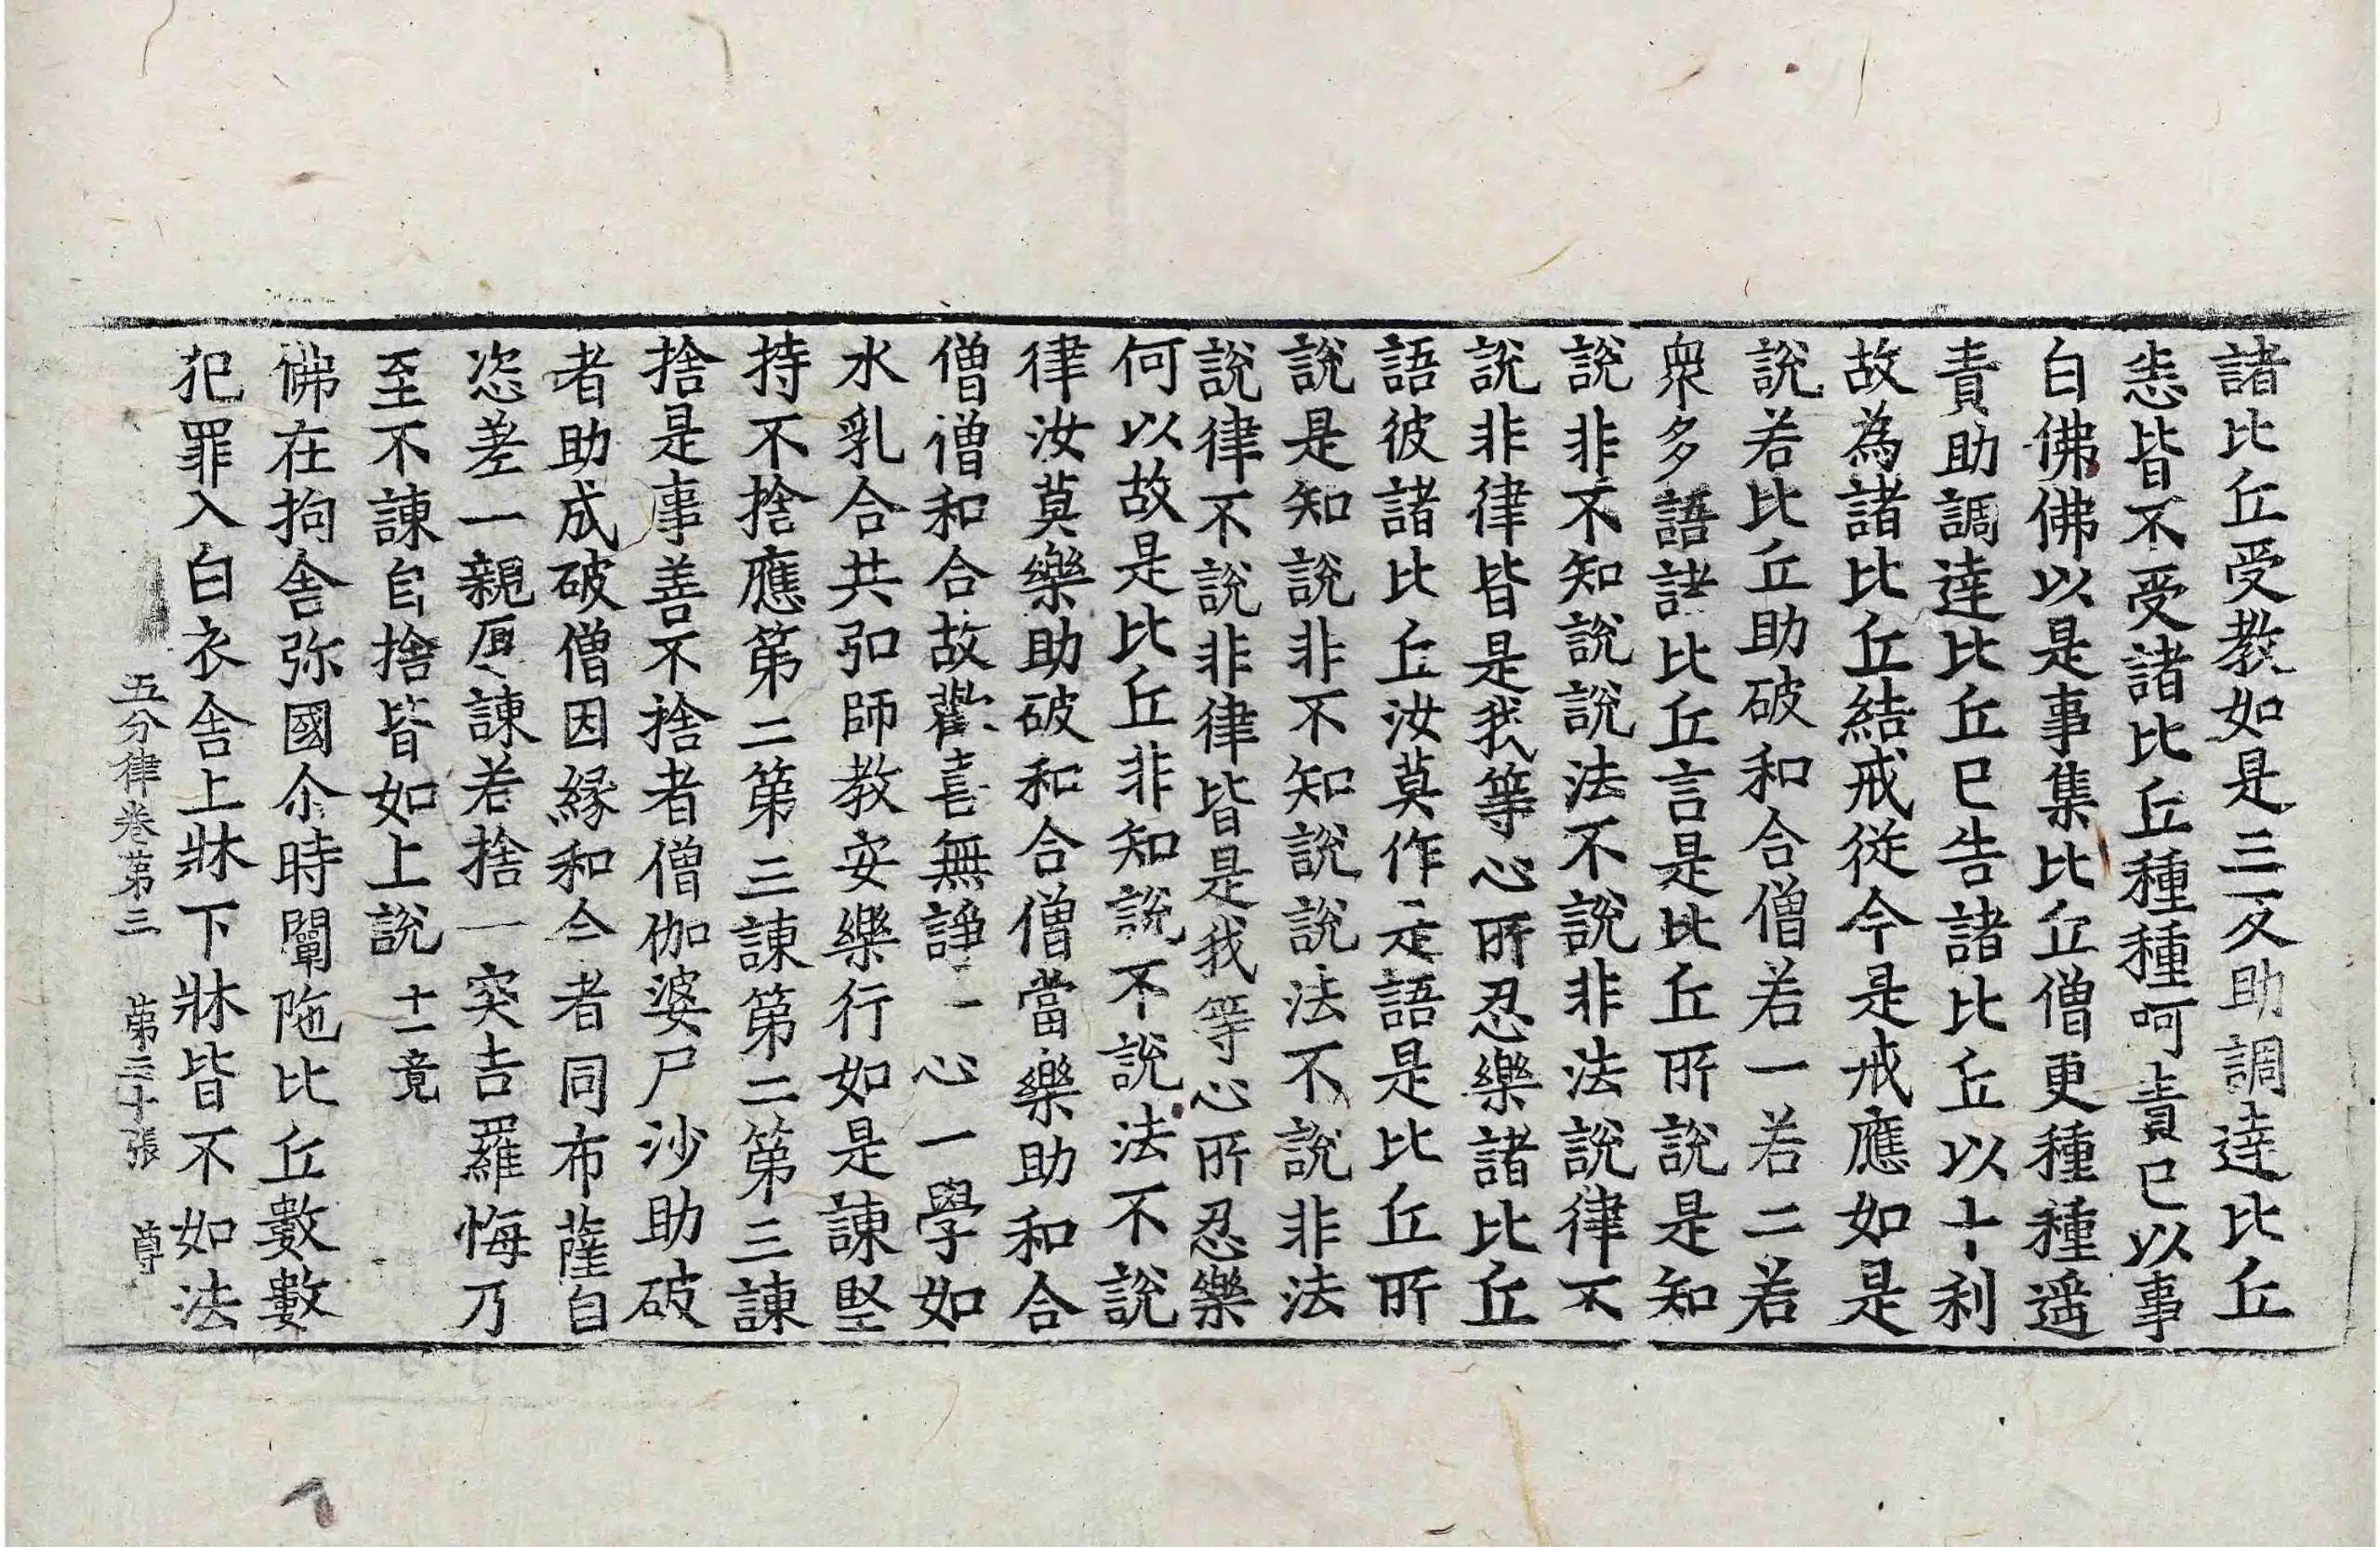 諸比丘受教如是三反助調達比丘
恚皆不受諸比丘種種呵責已以事
白佛佛以是事集比丘僧更種種遥
責助調達比丘已告諸比丘以十利
故為諸比丘結戒従今是戒應如是
說若比丘助破和合僧若一若二若
衆多語諸比丘言是比丘所說是知
說非不知說說法不說非法說律不
說非律皆是我等心所忍樂諸比丘
語彼諸比丘汝莫作是語是比丘所
說是知說非不知說說法不說非法
說律不說非律皆是我等心所忍樂
何以故是比丘非知說不說法不說
律汝莫樂助破和合僧當樂助和合
僧僧和合故歡喜無諍一心一學如
水乳合共弘師教安樂行如是諫堅
持不捨應第二第三諫第二第三諫
捨是事善不捨者僧伽婆尸沙助破
者助成破僧因緣和合者同布薩自
恣差一親厚諫若捨一突吉羅悔乃
至不諫自捨皆如上說十一竟
佛在拘舍弥國尒時闡陁比丘數數
犯罪入白衣舍上牀下牀皆不如法
五分律卷第三 第三十張 尊